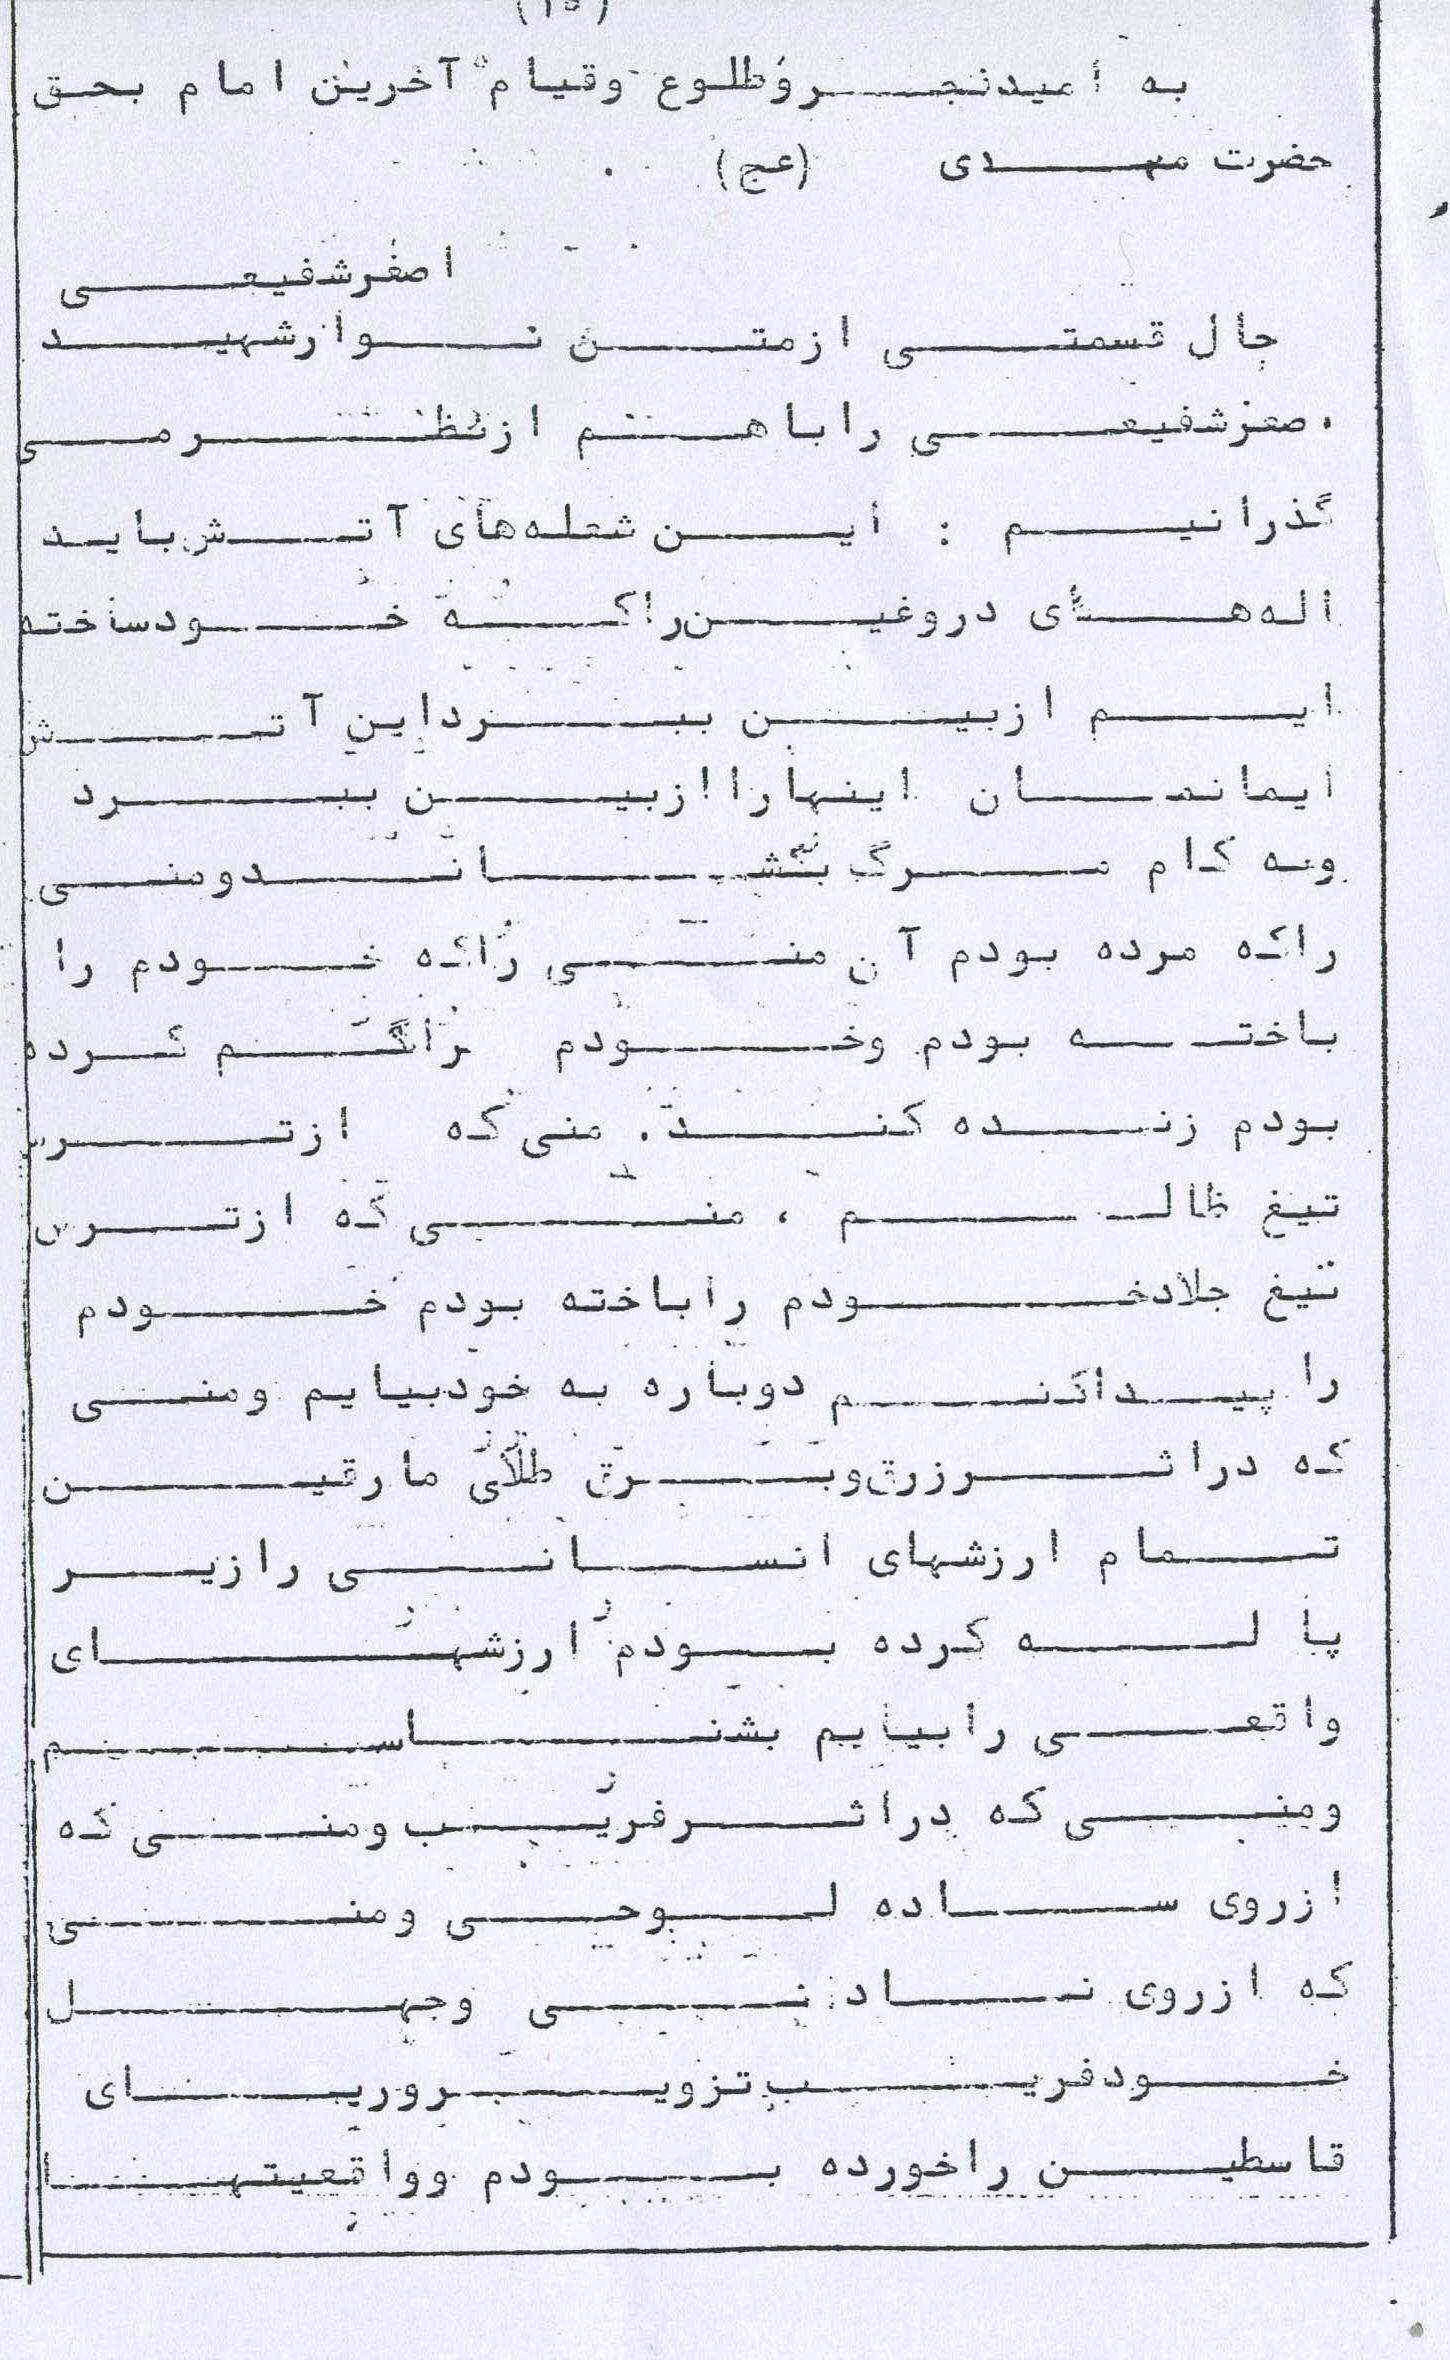 (۱۵)
به امیدنجروطلوع وقیام آخرین امام بحق
حضرت مهدی (عج)
اصغرشفیعی
حال قسمتی ازمتن نوارشهید
اصغرشفیعی راباهم ازنظرمی
گذرانیم : این شعله‌های آتش‌باید
اله‌های دروغین‌راکه خودساخته
ایم ازبین ببرداین آتش
ایمانمان اینهاراازبین ببرد
وبه کام مرگ بکشاندومنی
راکه مرده بودم آن منی راکه خودم را
باخته بودم وخودم راگم کرده
بودم زنده کند. منی‌که ازترس
تیغ ظالم ، منی‌که ازترس
تیغ جلادخودم راباخته بودم خودم
را پیداکنم دوباره به خودبیایم ومنی
که دراثرزرق‌وبرق طلای مارقین
تمام ارزشهای انسانی رازیر
پا له کرده بودم ارزشهای
واقعی رابیایم بشناسم
ومنی‌که دراثرفریب‌ومنی‌که
ازروی ساده لوحی ومنی
که ازروی نادانی وجهل
خودفریب‌تزویروریای
قاسطین راخورده بودم وواقعیتها